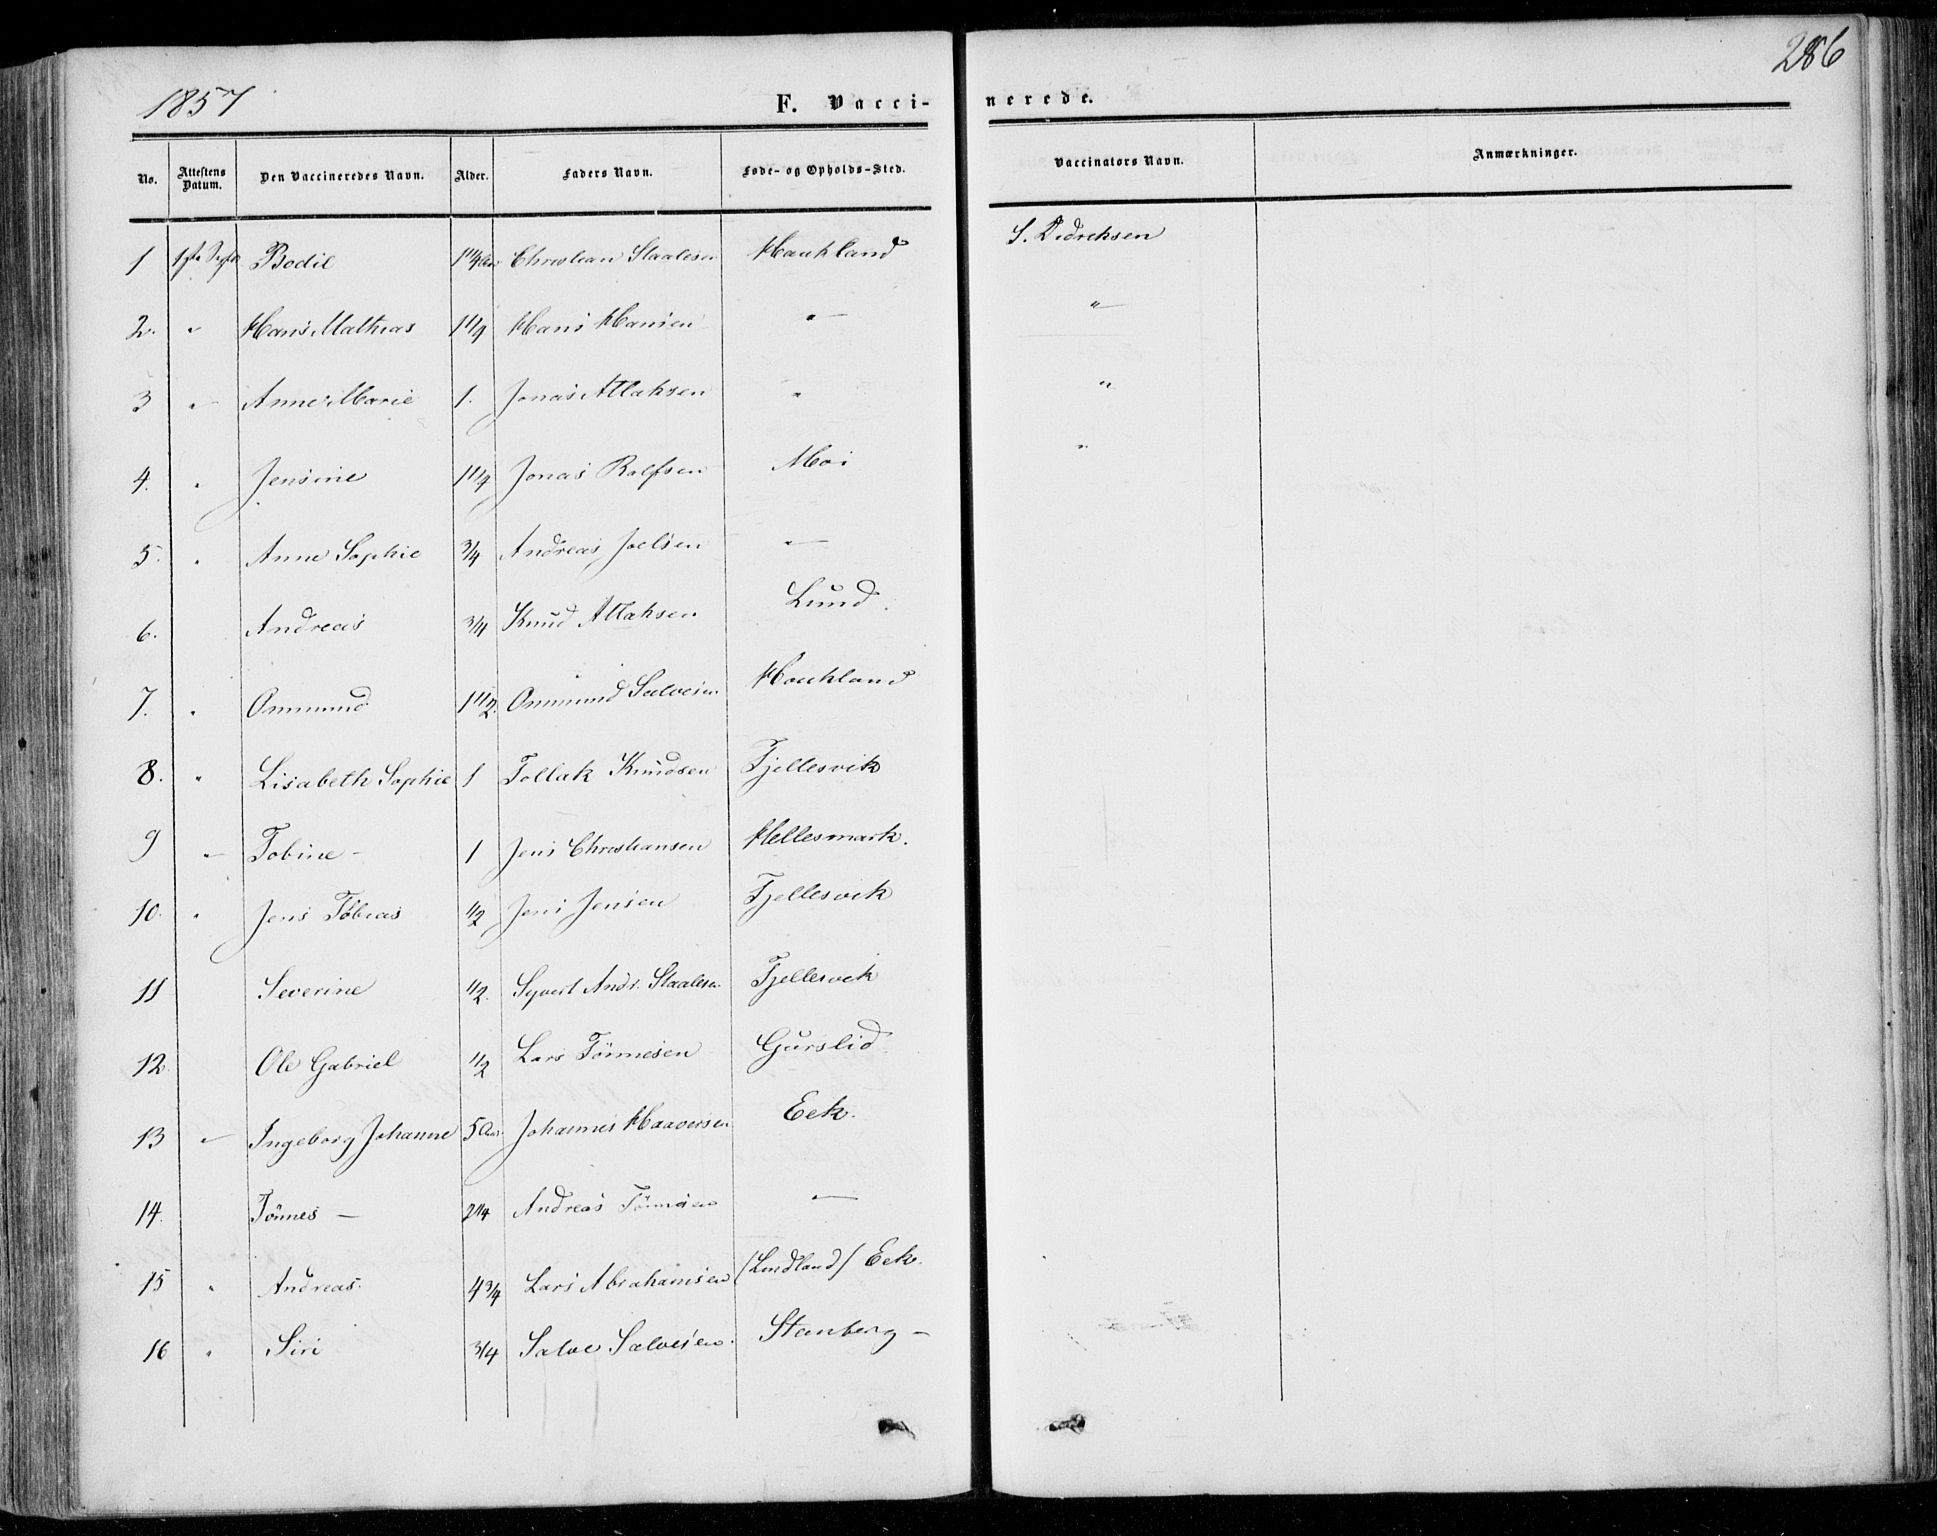 1857
286
F. Vaccinerede.
No. Attestens Datum. Den Vaccineredes Navn. Alder. Faders Navn. Føde- og Opholds-Sted. Vaccinators Navn. Anmærkninger.
1 Bodil 1 1/4 Aar Christian Staalesen Haukland S. Didreksen
2. " Hans Mathias 1 1/4 Hans Hansen " "
3 " Anne Marie 1. Jonas Atlaksen " "
4. " Jensine 1 1/4 Jonas Rolfsen Moi "
5. " Anne Sophie 3/4 Andreas Joelsen "
6. Andreas 3/4 Knud Atlaksen Lund.
7. " Ommund 1 1/2. Ommund Salvesen Haukland
8. " Lisabeth Sophie 1 Tollak Knudsen Fjellesvik
9 " Tobine – 1 Jens Christiansen Hellesmark.
10. " Jens Tobias 1/2 Jens Jensen Fjellesvik
11 Severine 1/2. Syvert Andr. Staalesen Fjellesvik
12. Ole Gabriel 1/2 Lars Tönnesen Gurslid
13 " Ingeborg Johanne 5 Aar Johannes Haaversen Eek.
14. Tönnes – 2 1/4 Andreas Tönnesen —
15 " Andreas. 4 3/4 Lars Abrahamsen (Lindland) Eek.
16 " Siri 3/4 Salve Salvesen. Stenberg –